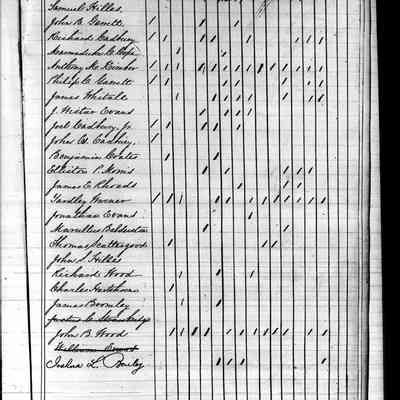 Samuel Hilles
John B. Garrett
Richard Cadbury
Marmaduke C. Cope
Anthony M. Kimber
Philip C. Garrett
James Whitall
J. Wistar Evans
Joel Cadbury, Jr.
John W. Cadbury,
Benjamin Coates
Elliston P. Morris
James E. Rhoads
Yardley Warner
Jonathan Evans
Marcellus Balderston
Thomas Scattergood
John S. Hilles
Richard Wood
Charles
James Bromley
John B. Wood
William
Joshua L. Baily